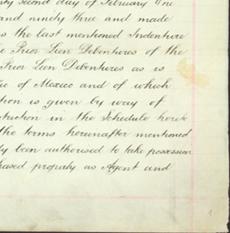 ty second day of February One
and ninety three and made
s the last mentioned Indenture
e Prior Lien Debentures of the
Prior Lien Debentures as is
ic of Mexico and of which
tion is given by way of
struction in the Schedule hereto
the terms hereinafter mentioned
ly been authorised to take possession
hased property as Agent and